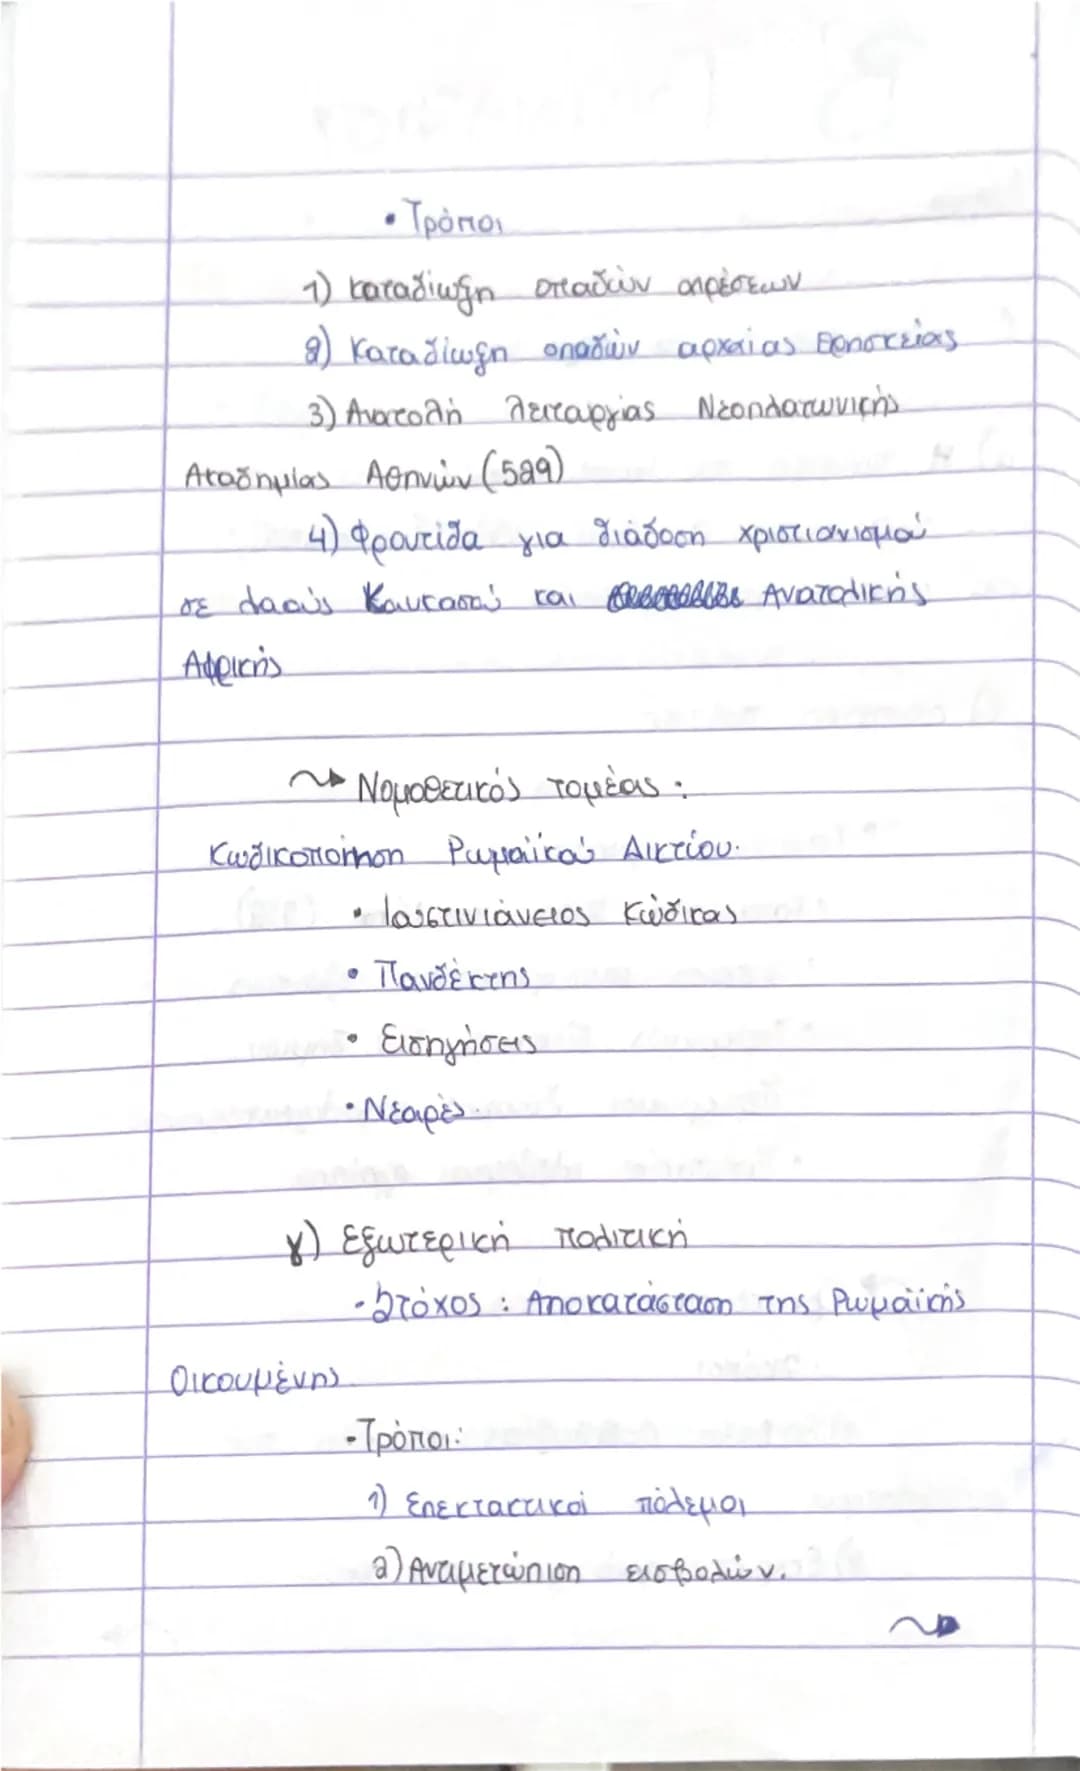 • Τρόποι
1) Καταδίωξη οπαδών αιρέσεων
2) Καταδίωξη οπαδών αρχαίας θρησκείας
3) Ανατολή λειτουργίας Νεοπλατωνικής
Ακαδημίας Αθηνών (529)
4) Φροντίδα για διάδοση χριστιανισμού
σε λαούς Καυκασού και Ανατολικής
Αφρικής
Νομοθετικός τομέας :
Κωδικοποίηση Ρωμαϊκού Δικτίου.
• Ιουστινιάνειος Κώδικας
• Πανδέκτης
• Εισηγήσεις
• Νεαρές.
γ) Εξωτερική πολιτική
- Στόχος : Αποκατάσταση της Ρωμαϊκής
Οικουμένης
- Τρόποι:
1) Επεκτατικοί πόλεμοι
2) Αντιμετώπιση εισβολών.